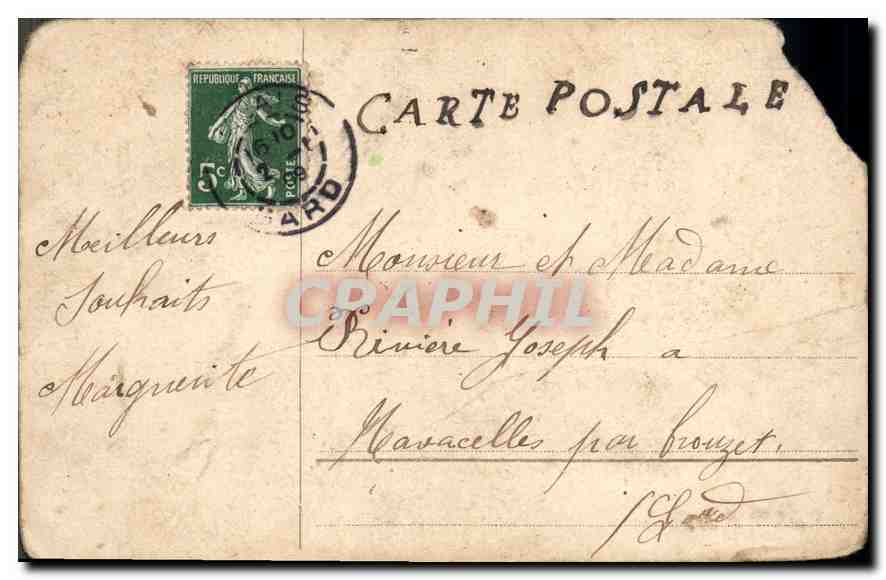 REPUBLIQUE FRANÇAISE
5c
POSTE
GARD
CARTE POSTALE
Meilleurs
Souhaits
Marguerite
Monsieur et Madame
CPAPHIL
Rivière Joseph a
Navacelles par Brouzet.
Gard